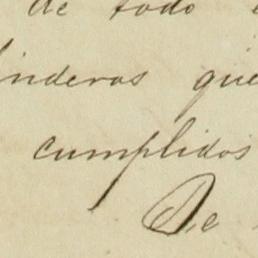 de todo
linderos que
cumplidos
De